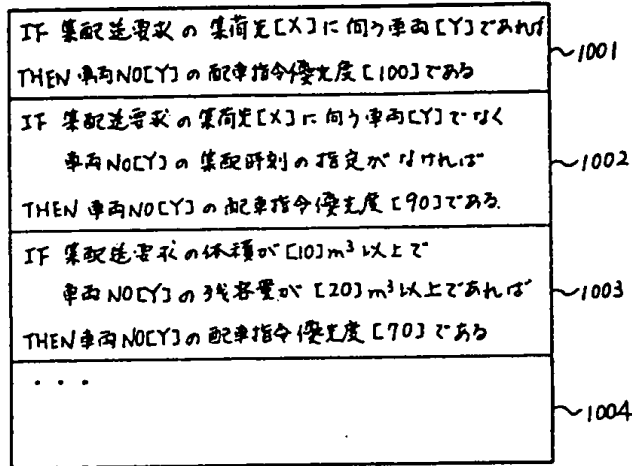 IF 集配送要求の集荷先[X]に向う車両[Y]であれば
THEN 車両NO[Y]の配車指令優先度[100]である
~1001
IF 集配送要求の集荷先[X]に向う車両[Y]でなく
車両NO[Y]の集配時刻の指定がなければ
~1002
THEN 車両NO[Y]の配車指令優先度[90]である.
IF 集配送要求の体積が[10]m³以上で
車両NO[Y]の残容量が[20]m³以上であれば
~1003
THEN 車両NO[Y]の配車指令優先度[70]である
・・・
~1004